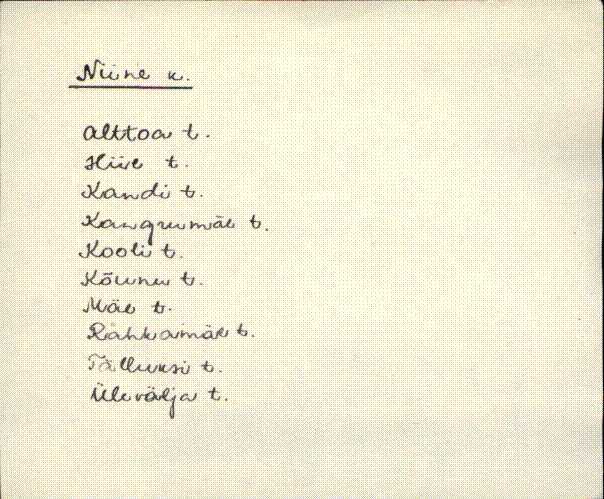 Niine k.
Alttoa t.
Hiie t.
Kandi t.
Kangrumäe t.
Kooli t.
Kõunu t.
Mäe t.
Rahkamäe t.
Tälluksi t.
Ülevälja t.